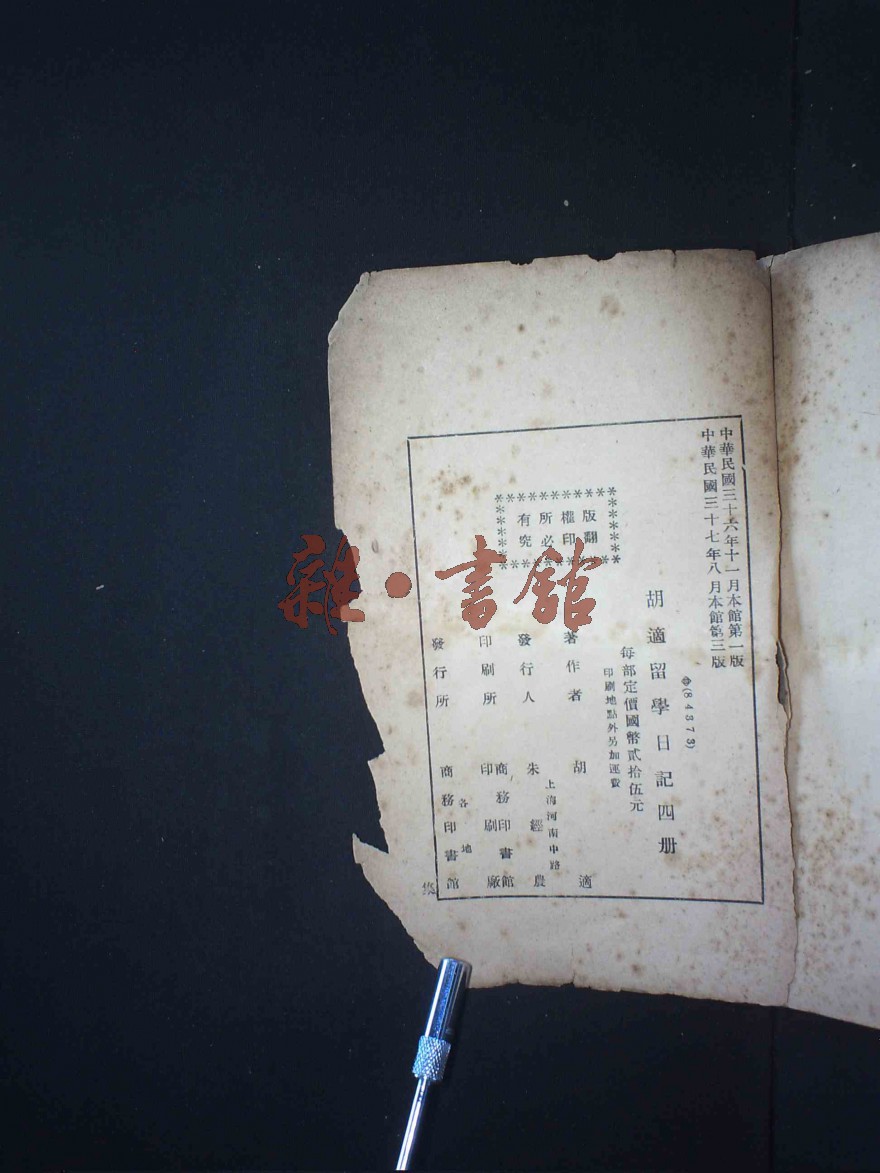 中華民國三十六年十一月本館第一版
中華民國三十七年八月本館第三版
◆(84373)
胡適留學日記四册
每部定價國幣貳拾伍元
印刷地點外另加運費
版權所有
翻印必究
著作者 胡適
上海河南中路
發行人 朱經農
印刷所 商務印書館印刷廠
各地
發行所 商務印書館
雜·書館